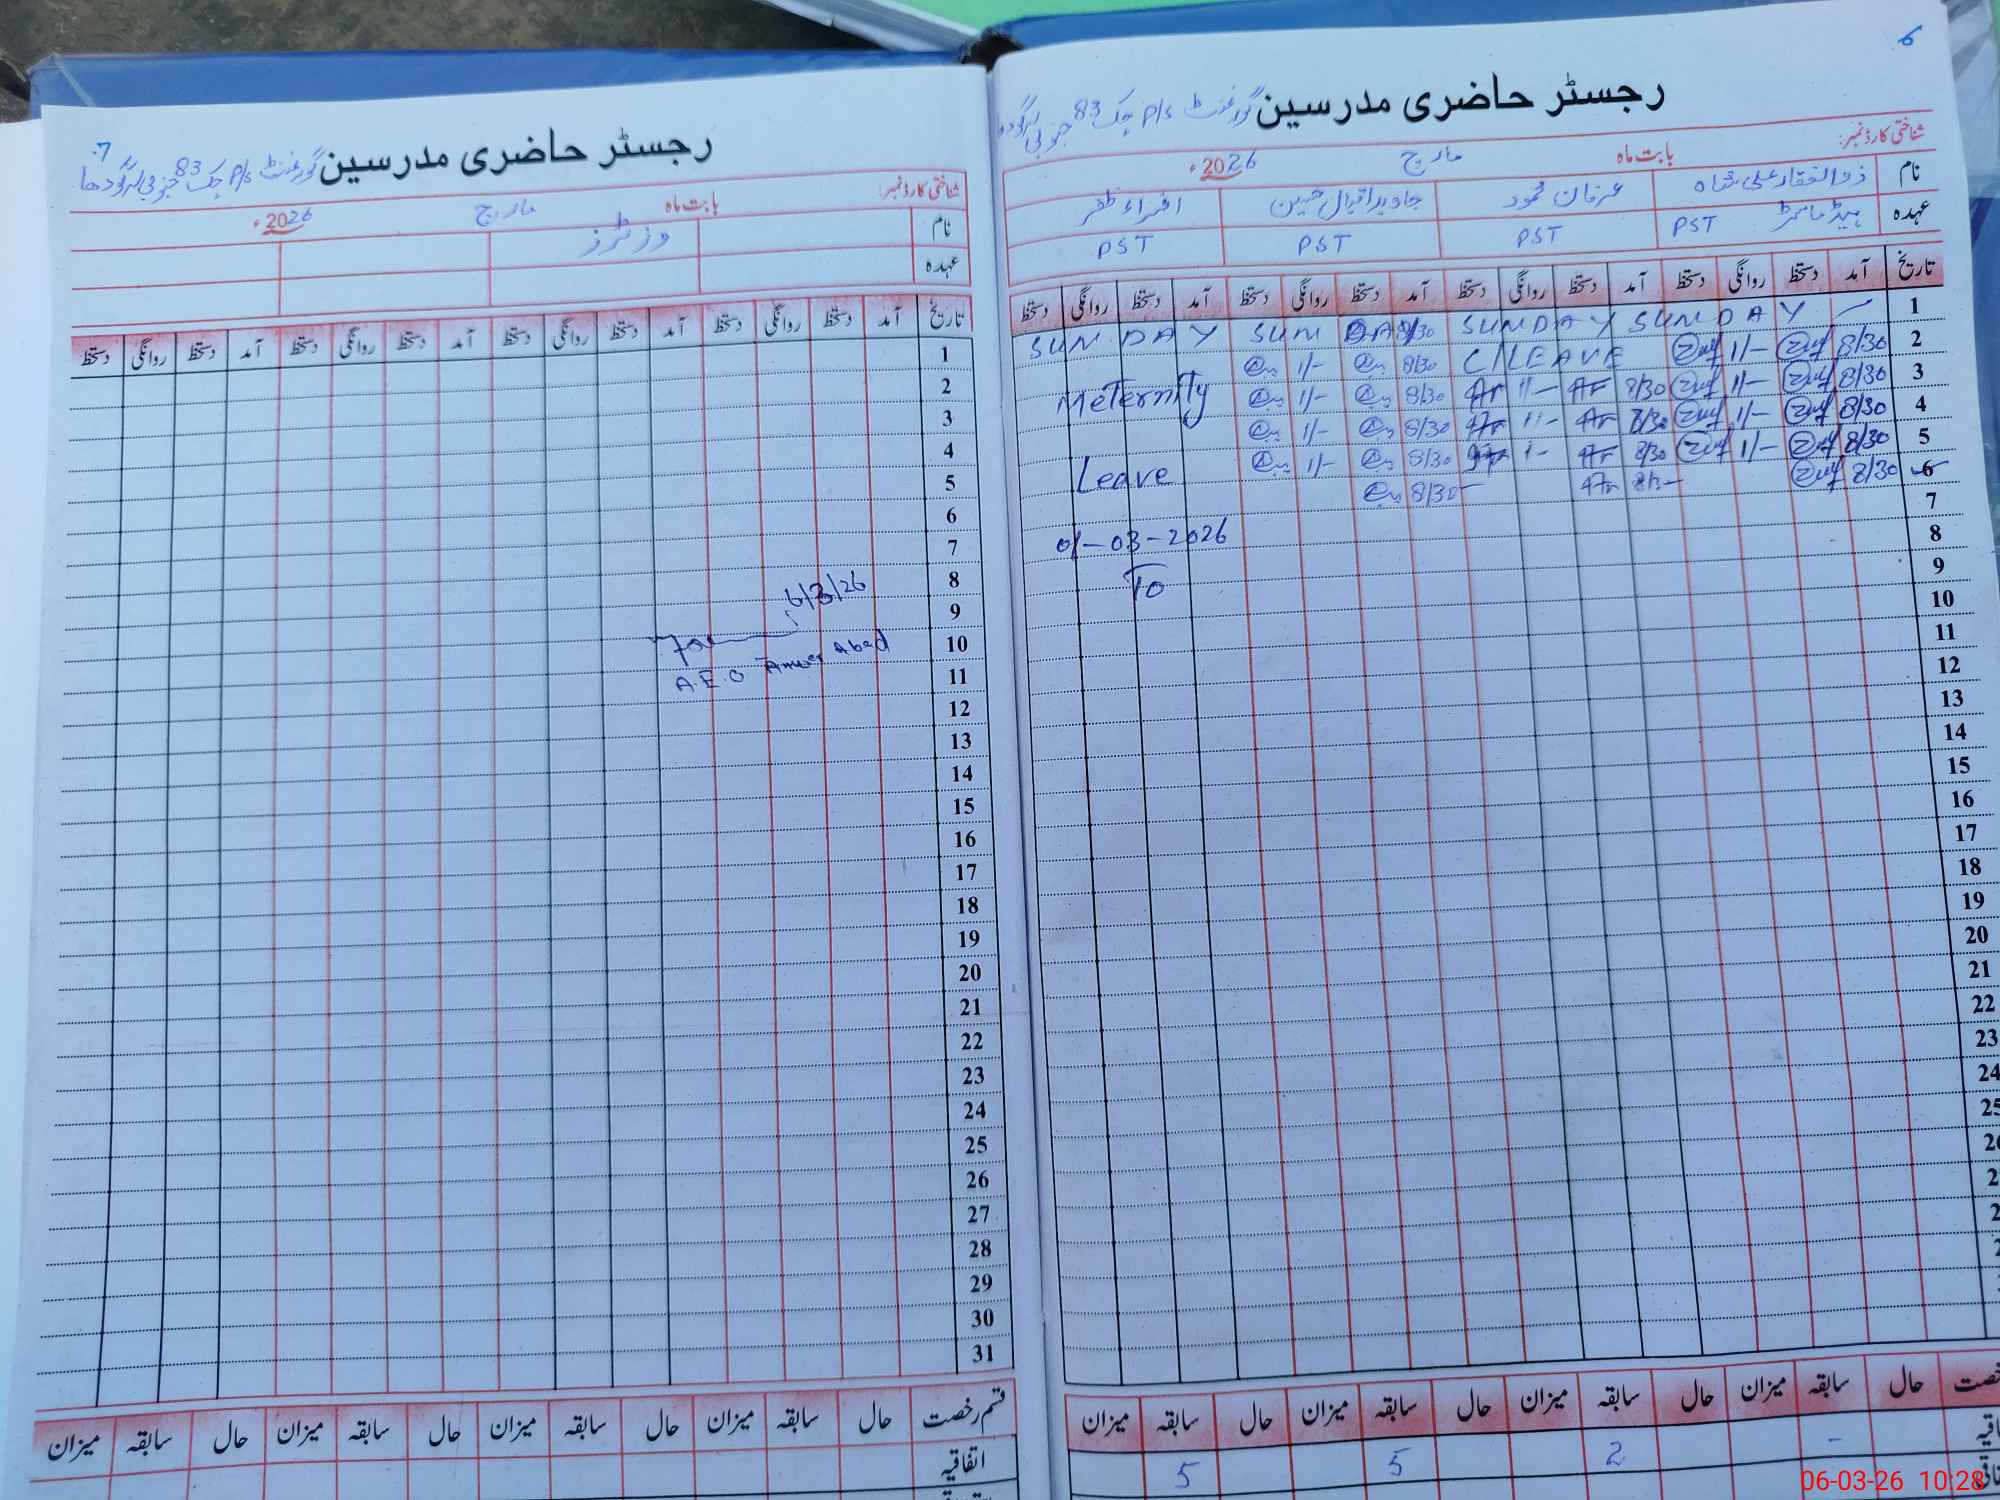 6
رجسٹر حاضری مدرسین گورنمنٹ P/S چک 83 جنوبی سرگودھا
شناختی کارڈ نمبر:
بابت ماہ مارچ 2026ء
نام ذوالفقار علی شاہ عرفان محمود جاوید اقبال حسین اقراء ظفر
عہدہ ہیڈ ماسٹر PST PST PST PST
تاریخ آمد دستخط روانگی دستخط آمد دستخط روانگی دستخط آمد دستخط روانگی دستخط آمد دستخط روانگی دستخط
1 SUNDAY SUNDAY SUNDAY SUNDAY
2 8/30 1/- C/LEAVE 8/30 1/-
3 8/30 1/- 8/30 1/- 8/30 1/- Meternity
4 8/30 1/- 8/30 1/- 8/30 1/-
5 8/30 1/- 8/30 1/- 8/30 1/- Leave
6 8/30 8/30 8/30
7
8 01-03-2026
9 To
10
11
12
13
14
15
16
17
18
19
20
21
22
23
24
25
حال سابقہ میزان حال سابقہ میزان حال سابقہ میزان حال سابقہ میزان
- 2 5 5
7
رجسٹر حاضری مدرسین گورنمنٹ P/S چک 83 جنوبی سرگودھا
شناختی کارڈ نمبر:
بابت ماہ مارچ 2026ء
نام وزٹرز
عہدہ
تاریخ آمد دستخط روانگی دستخط آمد دستخط روانگی دستخط آمد دستخط روانگی دستخط آمد دستخط روانگی دستخط
1
2
3
4
5
6
7
8 6/3/26
9
10
11 A.E.O Anwer Abad
12
13
14
15
16
17
18
19
20
21
22
23
24
25
26
27
28
29
30
31
قسم رخصت حال سابقہ میزان حال سابقہ میزان حال سابقہ میزان حال سابقہ میزان
اتفاقیہ
06-03-26 10:28